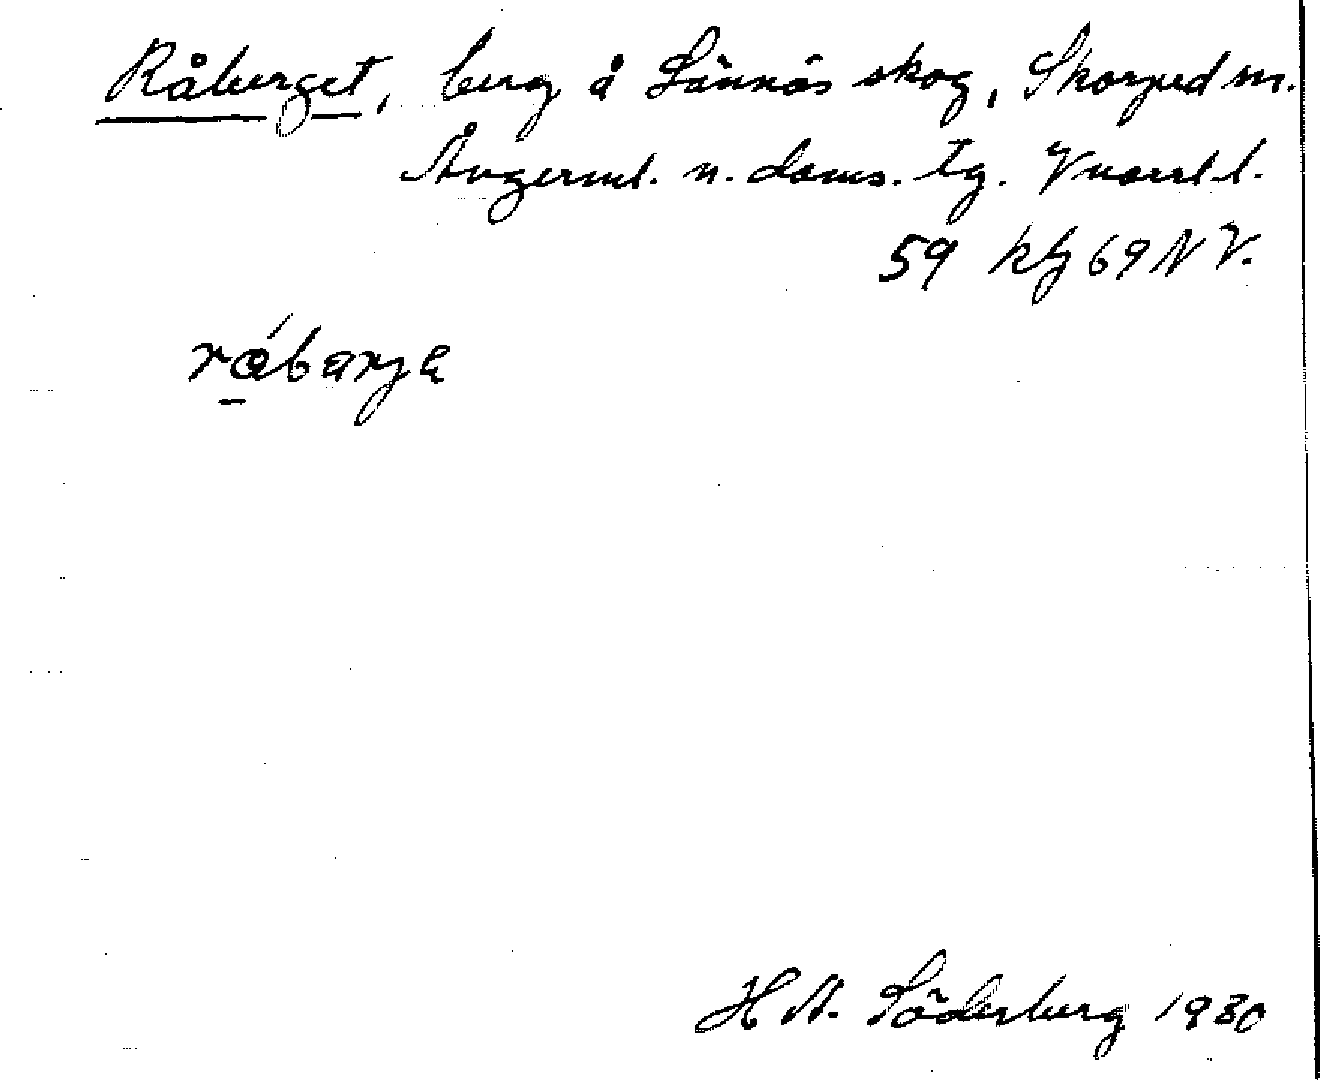 Råberget, berg å Sännäs skog, Skorped sn.
Ångerml. n. doms. tg. Vnorrl l.
59 kbj 69 NV.
råbarje
H A. Söderberg 1930